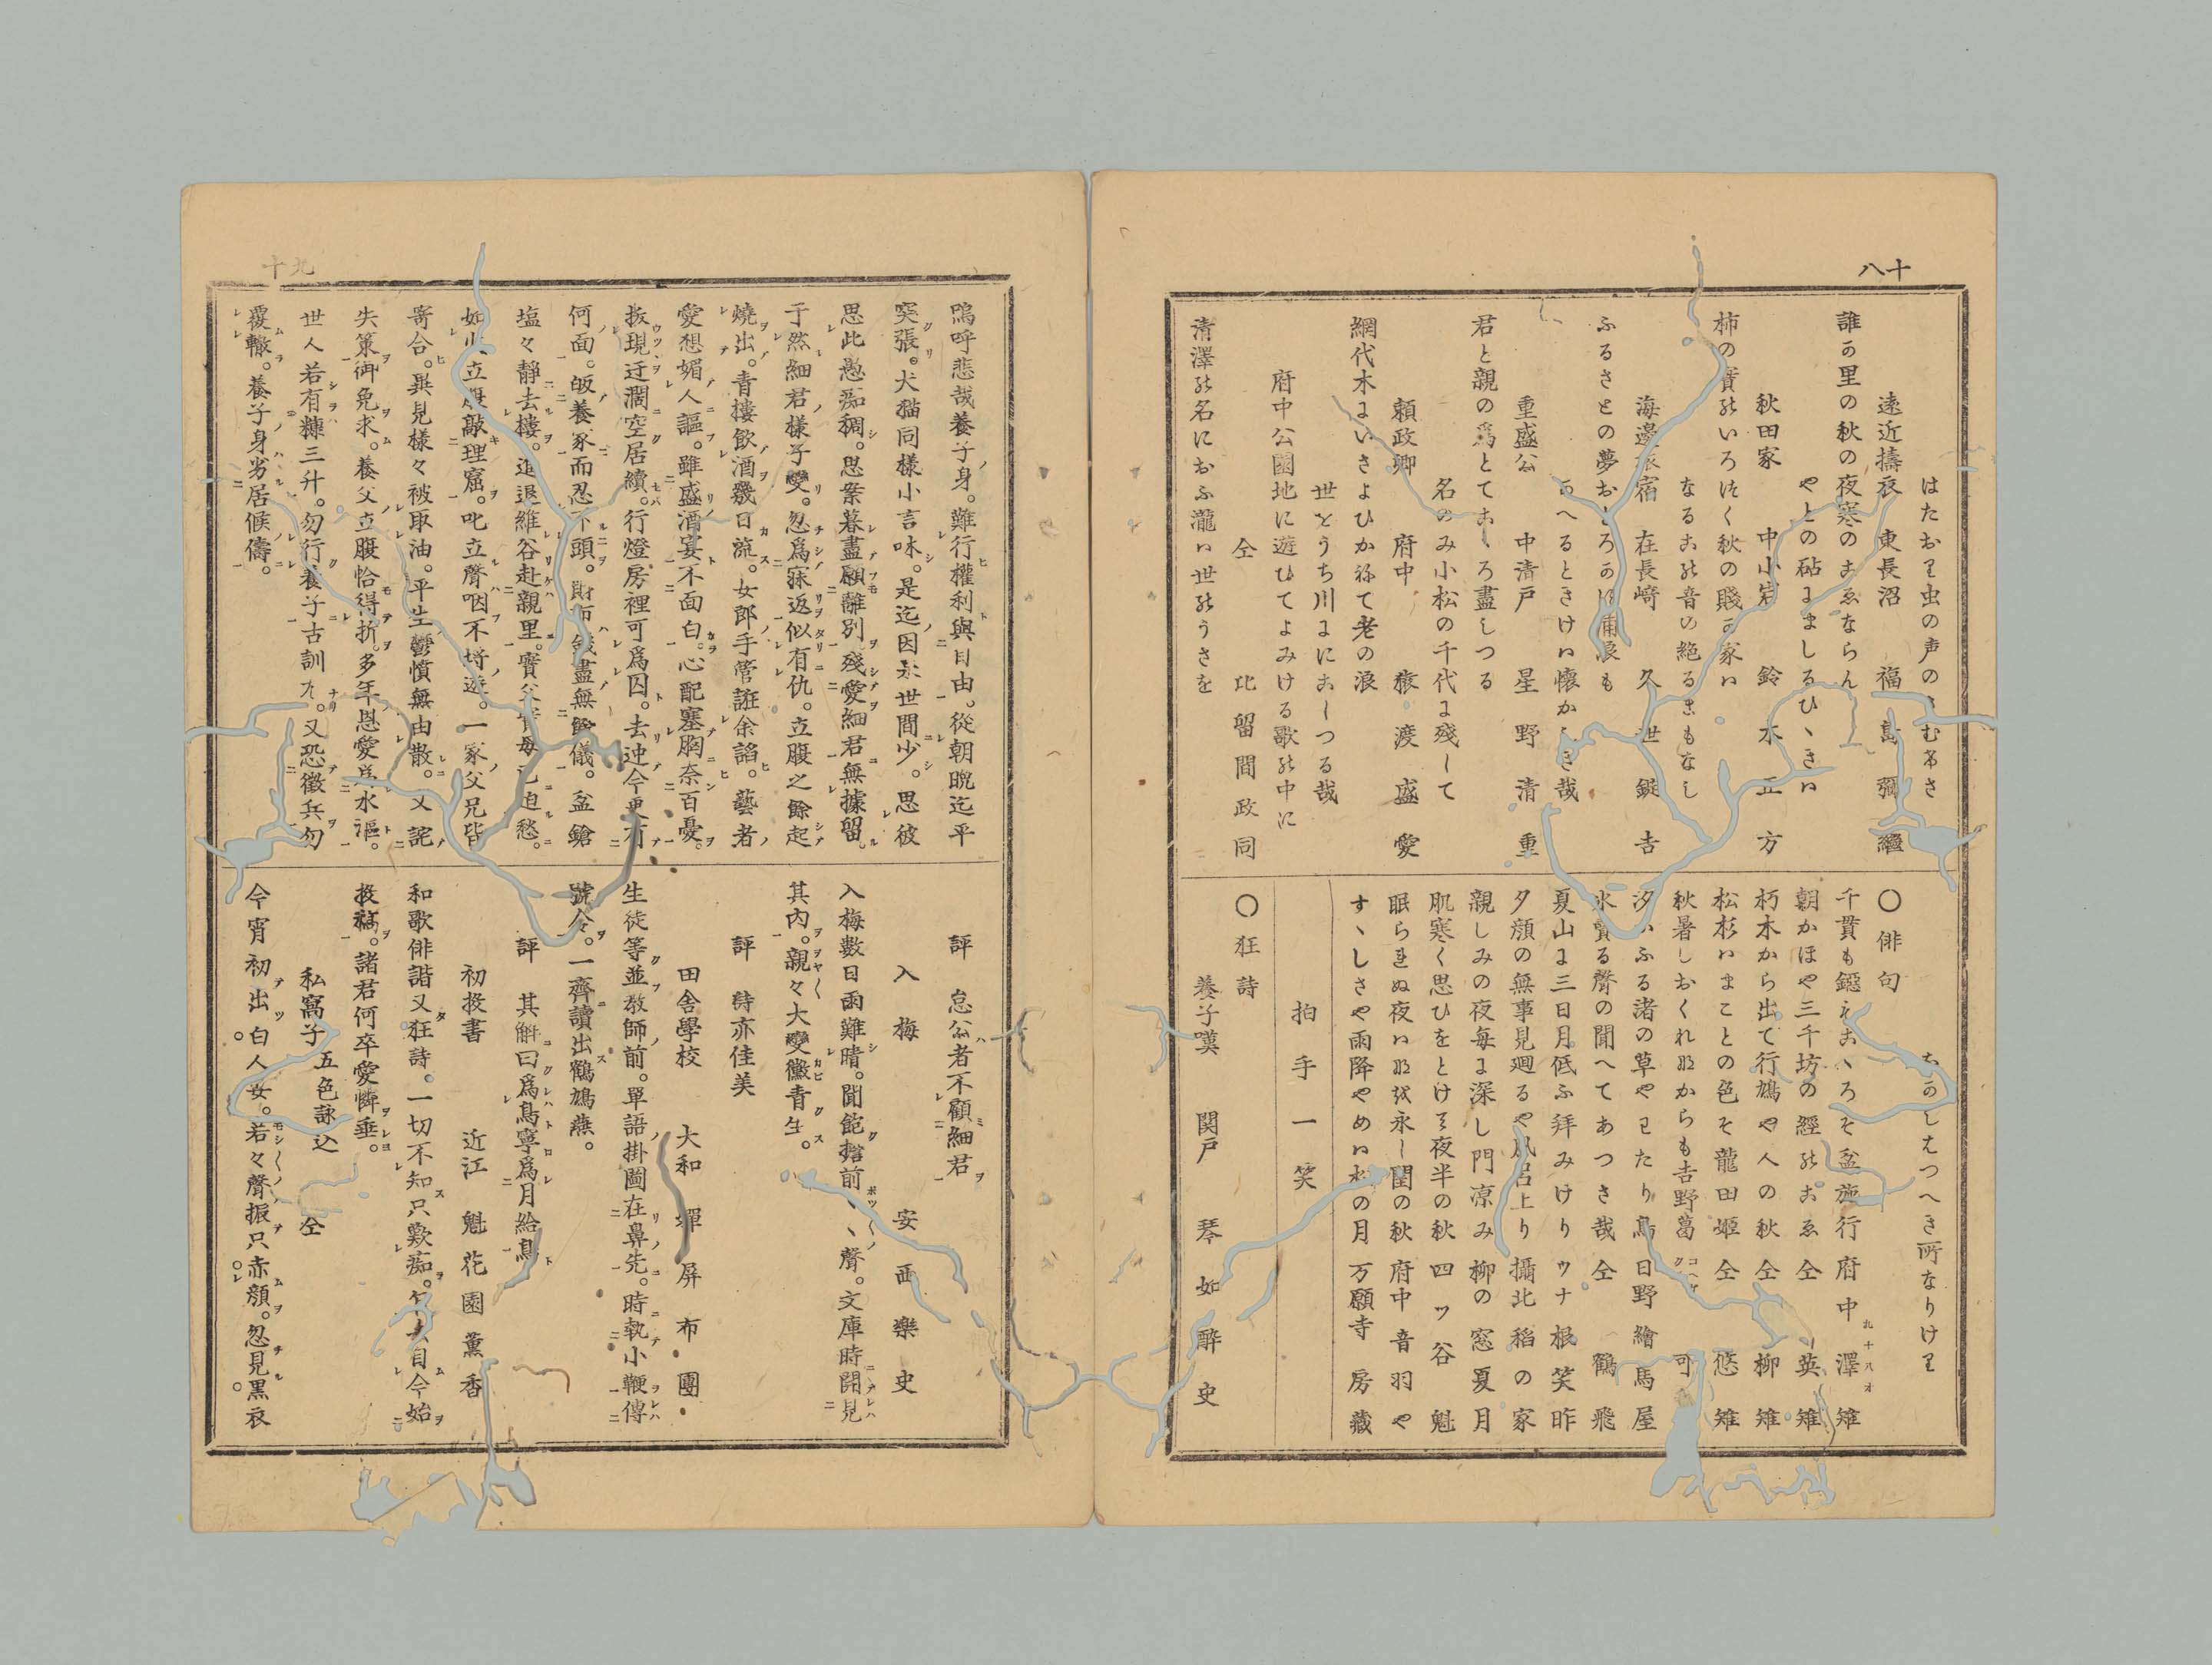 十八
はたおり虫の声の むなさ
遠近擣衣 東長沼 福島彌繼
誰かの里の秋の夜寒のこゑならん
やとの砧にましるひゝきハ
秋田家 中小岩 鈴木正方
柿の實のいろつく秋の賤か家ハ
なるこの音の絶るまもなし
海邊旅宿 在長崎 久世鎚吉
ふるさとの夢おとろかす浦浪も
かへるときけハ懐かしき哉
重盛公 中清戸 星野清重
君と親の爲とてこゝろ盡しつる
名のみ小松の千代に殘して
頼政卿 府中 猿渡盛愛
網代木にいさよひかねて老の浪
世をうち川ににこしつる哉
府中公園地に遊ひてよみける歌の中に
仝 比留間政同
清澤の名におふ瀧ハ世のうさを
ちかしえつへき所なりけり
〇俳句
千貫も鐚もこゝろそ盆施行 府中 九十八才 澤雉
朝かほや三千坊の經のこゑ 仝 英雉
朽木から出て行鳩や人の秋 仝 柳雉
松杉ハまことの色そ龍田姫 仝 悠雉
秋暑しおくれぬからも吉野葛 可
汐 ふる諸の草やわたり鳥 日野 繪馬屋
氷賣る聲の聞へてあつさ哉 仝 鶴飛
夏山に三日月低ふ拜みけり ウナ根 笑昨
夕顔の無事見廻るや風呂上り 攝北 稻の家
親しみの夜毎に深し門凉み 柳の窓 夏月
肌寒く思ひをとけき夜半の秋 四ツ谷 魁
眠られぬ夜ハ猶永し閨の秋 府中 音羽や
すゝしさや雨降やめハ松の月 万願寺 房藏
拍手一笑
〇狂詩
養子嘆 関戸 琴如醉史
十九
嗚呼悲哉養子身。難行權利與自由。從朝晩迄平
突張。犬猫同樣小言味。是迄因 世間少。思彼
思此愚痴稠。思案暮盡願離別。殘愛細君無據留。
于然細君樣子變。忽爲寐返似有仇。立腹之餘起
燒出。青樓飲酒幾日流。女郎手管誑余謟。藝者
愛想媚人謳。雖盛酒宴不面白。心配塞胸奈百憂。
拔現迂濶空居續。行燈房裡可爲囚。去迚今更有
何面。皈養家而忍不頭。財布錢盡無餘儀。盆鎗
塩々靜去樓。進退維谷赴親里。實父實母已迫愁。
如此立腹敲理窟。叱立聲咽不埒遊。一家父兄皆
寄合。異見樣々被取油。平生鬱憤無由散。又詫
失策御免求。養父立腹恰得折。多年恩愛爲水漚。
世人若有糠三升。勿行養子古訓尤。又恐徴兵勿
覆轍。養子身劣居候儔。
評 怠公者不顧細君
入梅 安西樂史
入梅數日雨難晴。聞飽 前ボツ〱ノ聲。文庫時開見
其内。親々大變黴青生。
評 詩亦佳美
田舍學校 大和 屏布團
生徒等並敎師前。單語掛圖在鼻先。時執小鞭傳
號令。一齊讀出鶴鳩燕。
評 其觧曰爲鳥寧爲月給鳥
初投書 近江 魁花園薫香
和歌俳諧又狂詩。一切不知只歎痴。 自今始
投稿。諸君何卒愛憐垂。
私窩子 五色詠込 仝
今宵初出白人女。若々聲振只赤顏。忽見黒衣